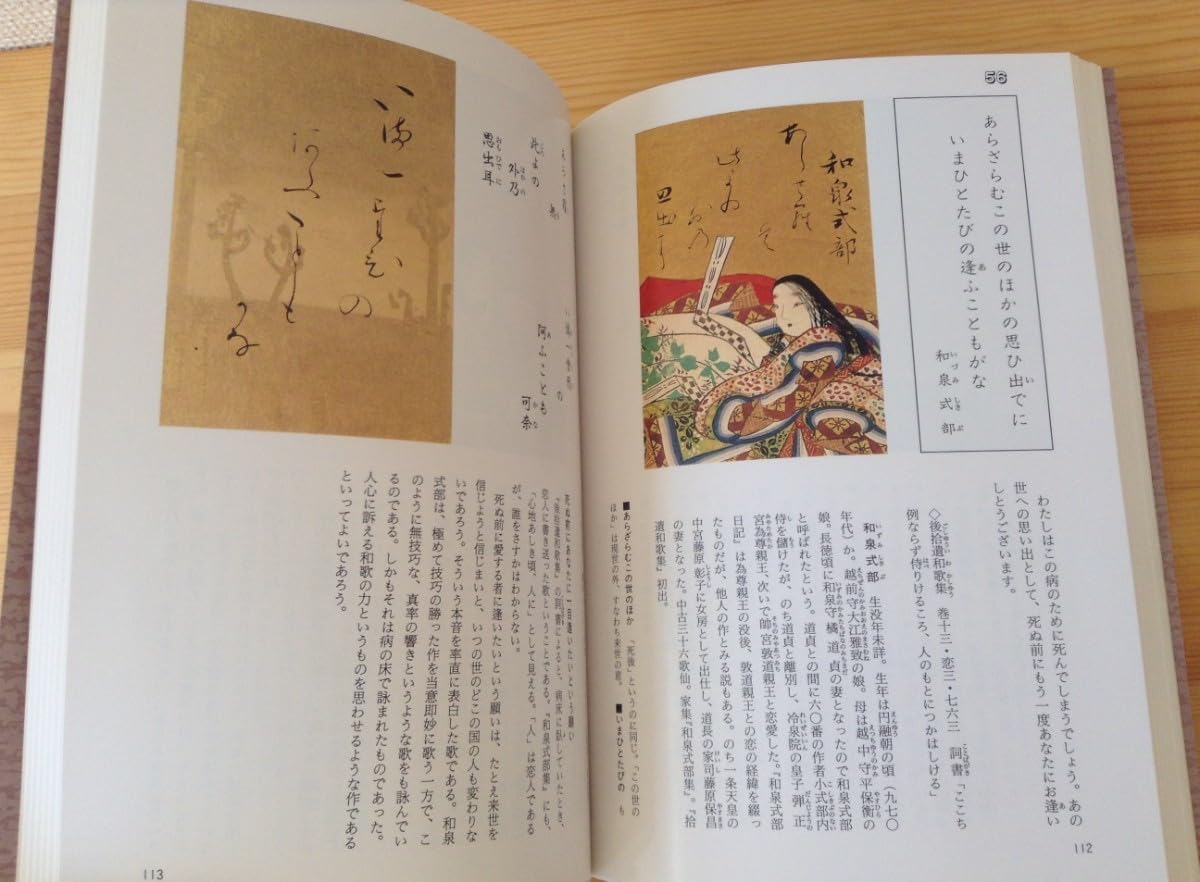 56
あらざらむこの世のほかの思ひ出でに
いまひとたびの逢ふこともがな
和泉式部
和泉式部
わたしはこの病のために死んでしまうでしょう。あの
世への思い出として、死ぬ前にもう一度あなたにお逢い
しとうございます。
◇後拾遺和歌集 巻十三・恋三・七六三 詞書「ここち
例ならず侍りけるころ、人のもとにつかはしける」
和泉式部 生没年未詳。生年は円融朝の頃(九七〇
年代)か。越前守大江雅致の娘。母は越中守平保衡の
娘。長徳頃に和泉守橘道貞の妻となったので和泉式部
と呼ばれたという。道貞との間に六〇番の作者小式部内
侍を儲けたが、のち道貞と離別し、冷泉院の皇子弾正
宮為尊親王、次いで帥宮敦道親王と恋愛した。『和泉式部
日記』は為尊親王の没後、敦道親王との恋の経緯を綴っ
たものだが、他人の作とみる説もある。のち一条天皇の
中宮藤原彰子に女房として出仕し、道長の家司藤原保昌
の妻となった。中古三十六歌仙。家集『和泉式部集』。『拾
遺和歌集』初出。
■あらざらむこの世のほか 「死後」というのに同じ。「この世の
ほか」は現世の外、すなわち来世の意。 ■いまひとたびの も
112
此よの
外乃
思出耳
の
阿ふことも
可奈
死ぬ前にあなたに一目逢いたいという願い
『後拾遺和歌集』の詞書によると、病床に臥していたとき、
恋人に書き送った歌ということである。『和泉式部集』にも、
「心地あしき頃、人に」として見える。「人」は恋人である
が、誰をさすかはわからない。
死ぬ前に愛する者に逢いたいという願いは、たとえ来世を
信じようと信じまいと、いつの世のどこの国の人も変わりな
いであろう。そういう本音を率直に表白した歌である。和泉
式部は、極めて技巧の勝った作を当意即妙に歌う一方で、こ
のように無技巧な、真率の響きというような歌をも詠んでい
るのである。しかもそれは病の床で詠まれたものであった。
人心に訴える和歌の力というものを思わせるような作である
といってよいであろう。
113